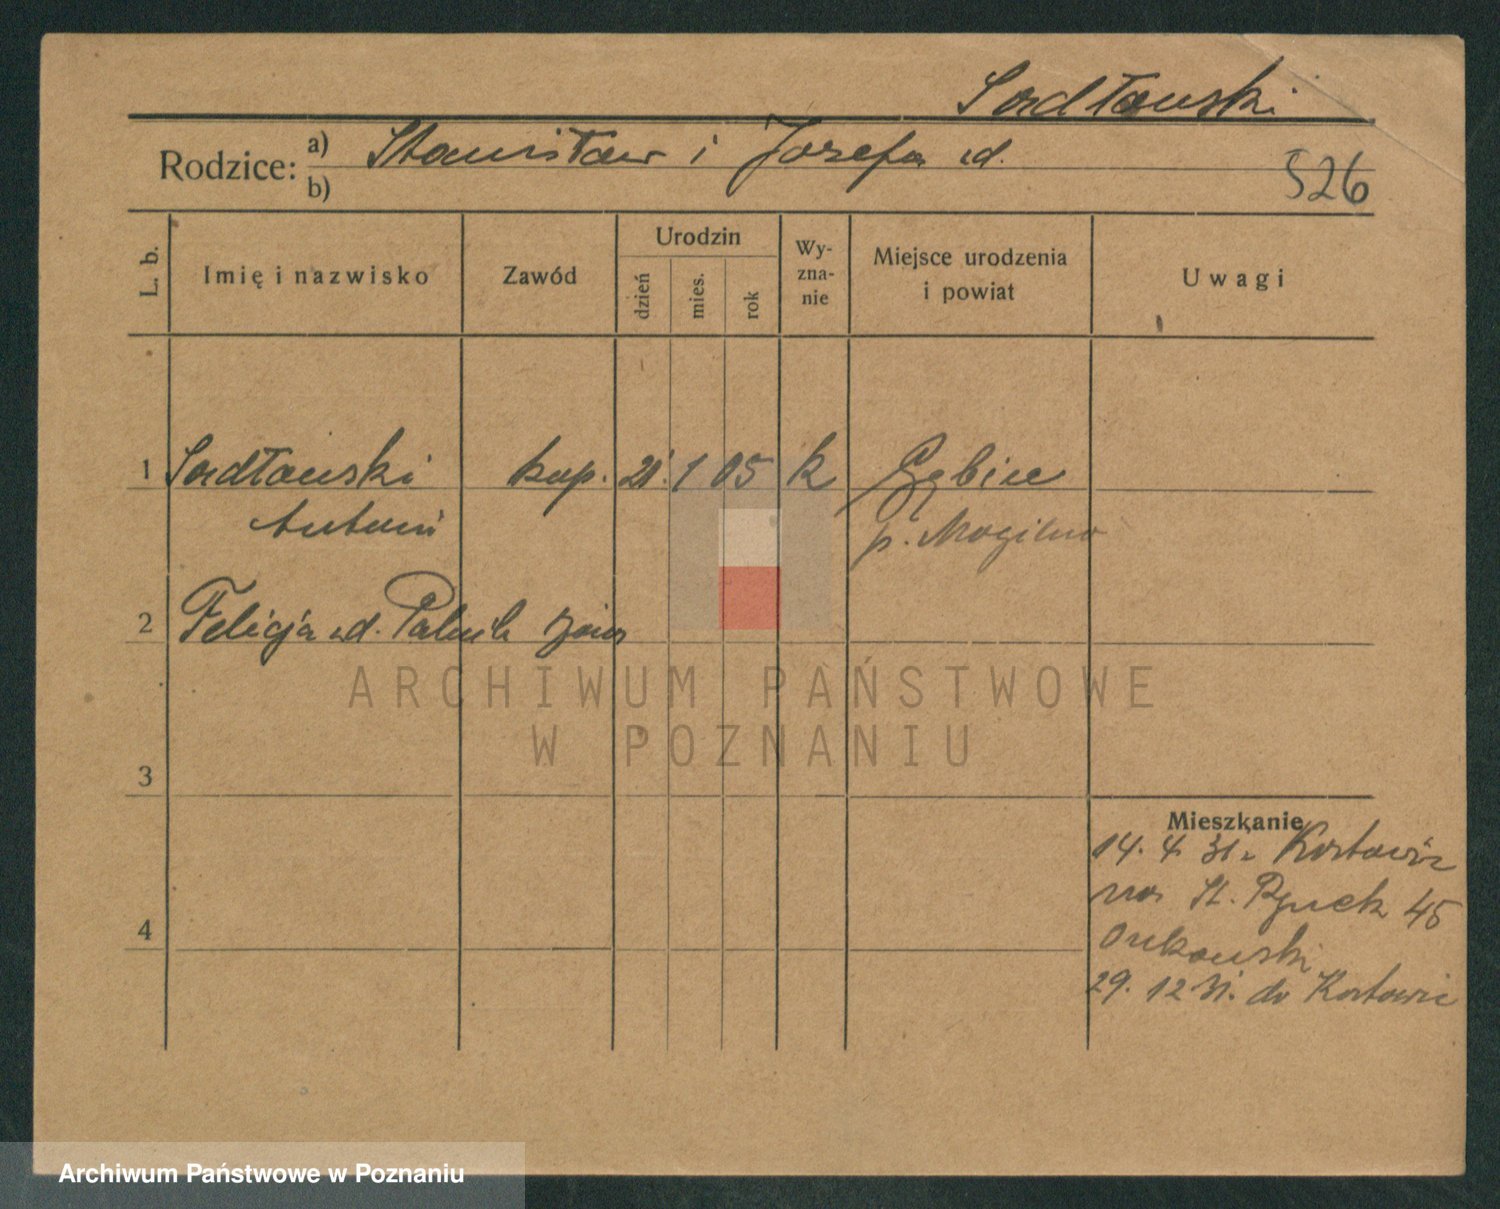 Sadłowski
Rodzice: a) Stanisław i Józefa zd.
b)
526
L. b. Imię i nazwisko Zawód Urodzin dzień mies. rok Wy-zna-nie Miejsce urodzenia i powiat Uwagi
1 Sadłowski kup. 21. 1 05 k Gębice
Antoni p. Mogilno
2 Felicja zd.
3
Mieszkanie
14. 4 31 z
na St. Rynek 45
4
29. 12 31. do
ARCHIWUM PAŃSTWOWE
W POZNANIU
Archiwum Państwowe w Poznaniu